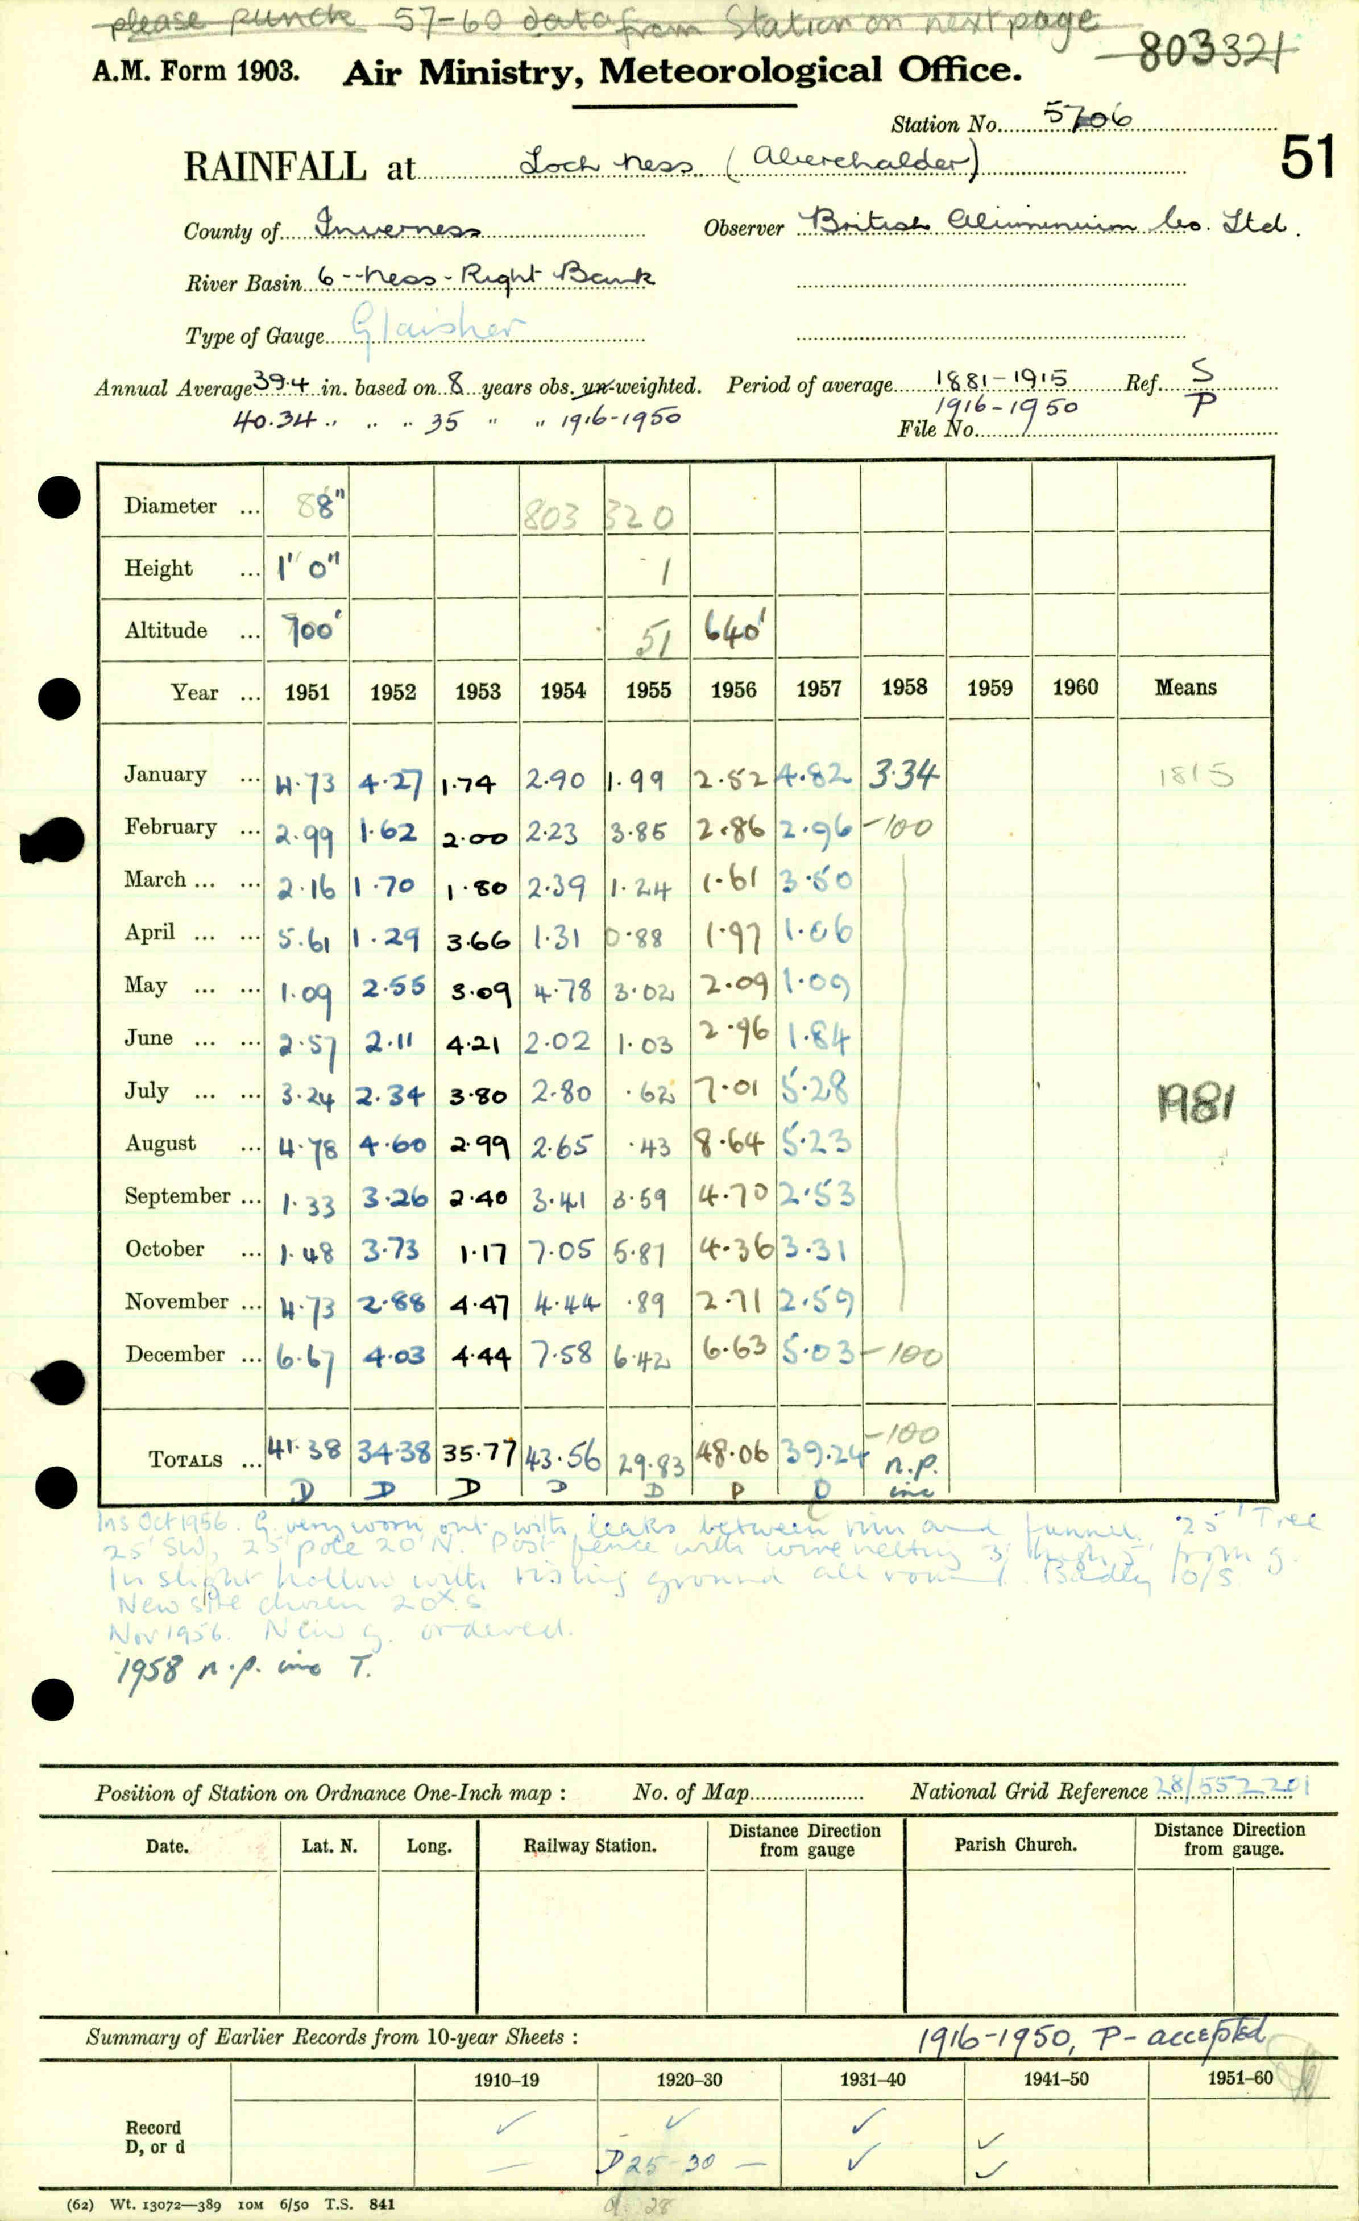 please punch 57-60 data from Station on next page
803321
A.M. Form 1903. Air Ministry, Meteorological Office.
Station No. 5706
51
RAINFALL at Loch Ness (Aberchalder)
County of Inverness Observer British Aluminium Co. Ltd.
River Basin 6 - Ness - Right Bank
Type of Gauge Glaisher
Annual Average 39.4 in. based on 8 years obs. un-weighted. Period of average 1881-1915 Ref. S
40.34 " " " 35 " " 1916-1950 1916-1950 P
File No.
Diameter ... 8" 803 320
Height ... 1' 0" 1
Altitude ... 700' 51 640'
Year ... 1951 1952 1953 1954 1955 1956 1957 1958 1959 1960 Means
January ... 4.73 4.27 1.74 2.90 1.99 2.52 4.82 3.34 1815
February ... 2.99 1.62 2.00 2.23 3.85 2.86 2.96 -100
March ... ... 2.16 1.70 1.80 2.39 1.24 1.61 3.50
April ... ... 5.61 1.29 3.66 1.31 0.88 1.97 1.06
May ... ... 1.09 2.55 3.09 4.78 3.02 2.09 1.09
June ... ... 2.57 2.11 4.21 2.02 1.03 2.96 1.84
July ... ... 3.24 2.34 3.80 2.80 .62 7.01 5.28 1981
August ... 4.78 4.60 2.99 2.65 .43 8.64 5.23
September ... 1.33 3.26 2.40 3.41 3.59 4.70 2.53
October ... 1.48 3.73 1.17 7.05 5.87 4.36 3.31
November ... 4.73 2.88 4.47 4.44 .89 2.71 2.59
December ... 6.67 4.03 4.44 7.58 6.42 6.63 5.03 -100
TOTALS ... 41.38 34.38 35.77 43.56 29.83 48.06 39.24 -100 n.p. inc
D D D D D P D
Ins Oct 1956. G. very worn out, with leaks between rim and funnel. 25' Tree
25' SW, 25' pole 20' N. Post fence with wire netting 3' high 5' from g.
In slight hollow with rising ground all round. Badly o/s
New site chosen 20x S
Nov 1956. New g. ordered.
1958 n.p. inc T.
Position of Station on Ordnance One-Inch map : No. of Map National Grid Reference 28/552201
Date. Lat. N. Long. Railway Station. Distance from Direction gauge Parish Church. Distance from Direction gauge.
Summary of Earlier Records from 10-year Sheets : 1916-1950, P - accepted
1910–19 1920–30 1931–40 1941–50 1951–60
Record ✓ ✓ ✓ ✓
D, or d — D 25-30 — ✓ ✓
(62) Wt. 13072—389 10M 6/50 T.S. 841 d. 28